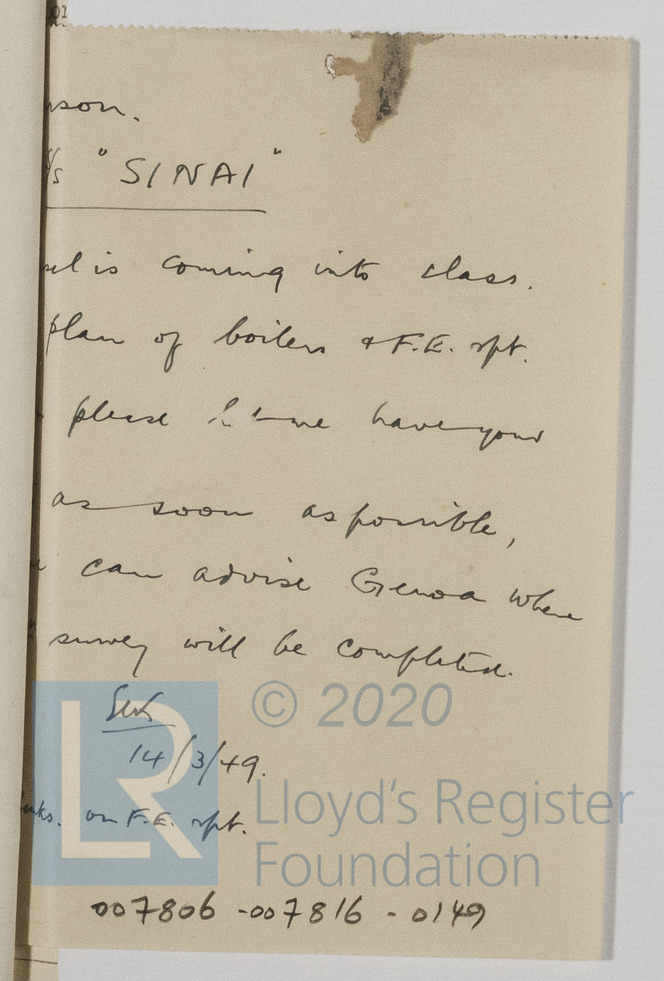 01
son.
/s "SINAI"
sel is coming into class.
plan of boilers & F.E. rpt.
please let me have your
as soon as possible,
can advise Genoa where
survey will be completed.
14/3/49.
on F.E. rpt.
007806 - 007816 - 0149
LR
© 2020
Lloyd's Register
Foundation